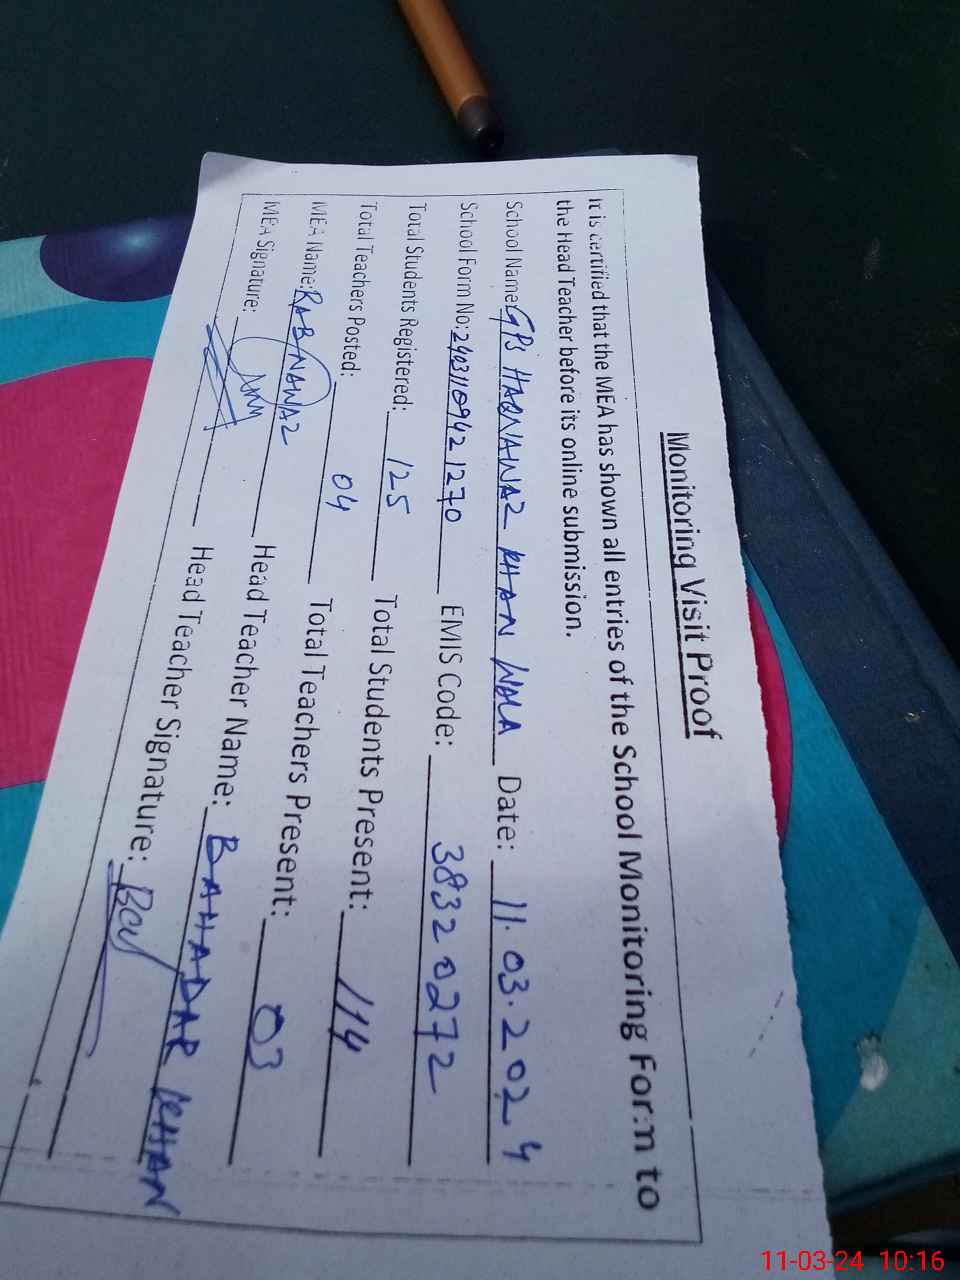 Monitoring Visit Proof
It is certified that the MEA has shown all entries of the School Monitoring Form to
the Head Teacher before its online submission.
School Name: GPS HAQNAWAZ KHAN WALA Date: 11.03.2024
School Form No: 24031109421270 EMIS Code: 38320272
Total Students Registered: 125 Total Students Present: 114
Total Teachers Posted: 04 Total Teachers Present: 03
MEA Name: RAB NAWAZ Head Teacher Name: BAHADAR KHAN
MEA Signature: Head Teacher Signature:
11-03-24 10:16